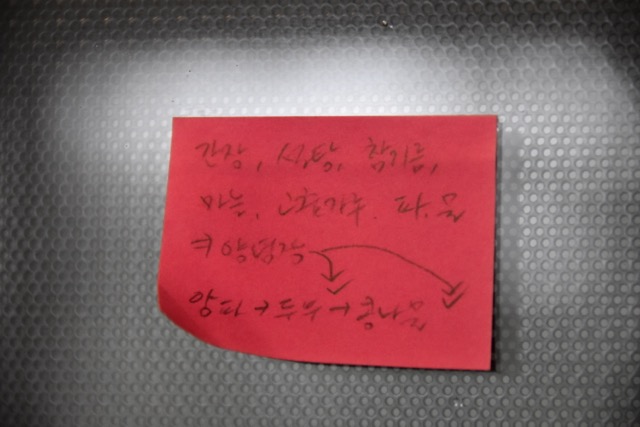 간장, 설탕, 참기름,
마늘, 고추가루. 파. 물
⇒ 양념장
양파 + 두부 + 콩나물